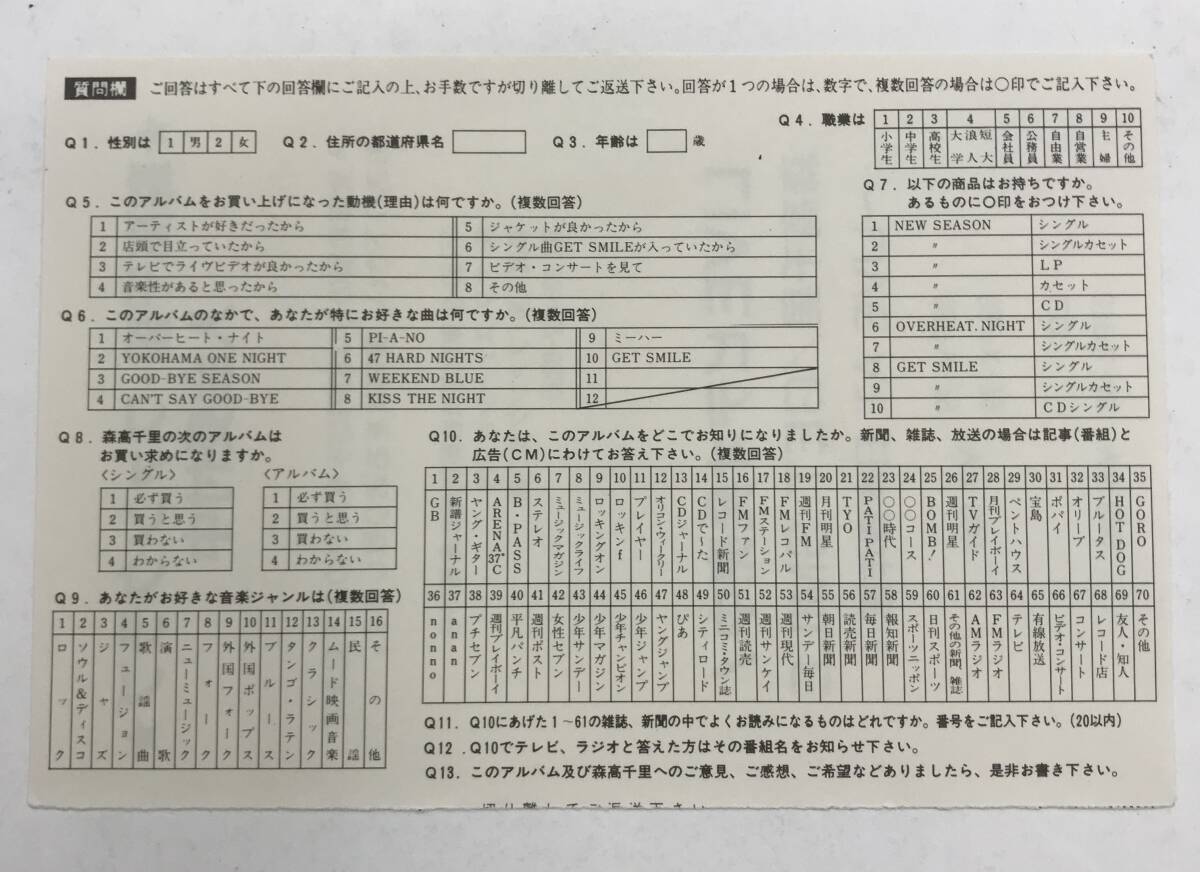 質問欄 ご回答はすべて下の回答欄にご記入の上、お手数ですが切り離してご返送下さい。回答が1つの場合は、数字で、複数回答の場合は〇印でご記入下さい。
Q1. 性別は 1 男 2 女 Q2. 住所の都道府県名 Q3. 年齢は 歳
Q4. 職業は 1 2 3 4 5 6 7 8 9 10
小学生 中学生 高校生 大学 浪人 短大 会社員 公務員 自由業 自営業 主婦 その他
Q5. このアルバムをお買い上げになった動機(理由)は何ですか。(複数回答)
1 アーティストが好きだったから 5 ジャケットが良かったから
2 店頭で目立っていたから 6 シングル曲GET SMILEが入っていたから
3 テレビでライヴビデオが良かったから 7 ビデオ・コンサートを見て
4 音楽性があると思ったから 8 その他
Q6. このアルバムのなかで、あなたが特にお好きな曲は何ですか。(複数回答)
1 オーバーヒート・ナイト 5 PI-A-NO 9 ミーハー
2 YOKOHAMA ONE NIGHT 6 47 HARD NIGHTS 10 GET SMILE
3 GOOD-BYE SEASON 7 WEEKEND BLUE 11
4 CAN'T SAY GOOD-BYE 8 KISS THE NIGHT 12
Q7. 以下の商品はお持ちですか。
あるものに〇印をおつけ下さい。
1 NEW SEASON シングル
2 〃 シングルカセット
3 〃 LP
4 〃 カセット
5 〃 CD
6 OVERHEAT. NIGHT シングル
7 〃 シングルカセット
8 GET SMILE シングル
9 〃 シングルカセット
10 〃 CDシングル
Q8. 森高千里の次のアルバムは
お買い求めになりますか。
〈シングル〉 〈アルバム〉
1 必ず買う 1 必ず買う
2 買うと思う 2 買うと思う
3 買わない 3 買わない
4 わからない 4 わからない
Q9. あなたがお好きな音楽ジャンルは(複数回答)
1 2 3 4 5 6 7 8 9 10 11 12 13 14 15 16
ロック ソウル&ディスコ ジャズ フュージョン 歌謡曲 演歌 ニューミュージック フォーク 外国フォーク 外国ポップス ブルース タンゴ・ラテン クラシック ムード映画音楽 民謡 その他
Q10. あなたは、このアルバムをどこでお知りになりましたか。新聞、雑誌、放送の場合は記事(番組)と
広告(CM)にわけてお答え下さい。(複数回答)
1 2 3 4 5 6 7 8 9 10 11 12 13 14 15 16 17 18 19 20 21 22 23 24 25 26 27 28 29 30 31 32 33 34 35
GB 新譜ジャーナル ヤング・ギター ARENA37℃ B・PASS ステレオ ミュージックマガジン ミュージックライフ ロッキングオン ロッキンf プレイヤー オリコン・ウィークリー CDジャーナル CDで〜た レコード新聞 FMファン FMステーション FMレコパル 週刊FM 月刊明星 TYO PATIPATI 〇〇時代 〇〇コース BOMB! 週刊明星 TVガイド 月刊プレイボーイ ペントハウス 宝島 ポパイ オリーブ ブルータス HOT DOG GORO
36 37 38 39 40 41 42 43 44 45 46 47 48 49 50 51 52 53 54 55 56 57 58 59 60 61 62 63 64 65 66 67 68 69 70
nonno anan プチセブン 週刊プレイボーイ 平凡パンチ 週刊ポスト 女性セブン 少年サンデー 少年マガジン 少年チャンピオン 少年ジャンプ ヤングジャンプ ぴあ シティロード ミニコミ・タウン誌 週刊読売 週刊サンケイ 週刊現代 サンデー毎日 朝日新聞 読売新聞 毎日新聞 報知新聞 スポーツニッポン 日刊スポーツ その他の新聞、雑誌 AMラジオ FMラジオ テレビ 有線放送 ビデオ・コンサート コンサート レコード店 友人・知人 その他
Q11. Q10にあげた1〜61の雑誌、新聞の中でよくお読みになるものはどれですか。番号をご記入下さい。(20以内)
Q12. Q10でテレビ、ラジオと答えた方はその番組名をお知らせ下さい。
Q13. このアルバム及び森高千里へのご意見、ご感想、ご希望などありましたら、是非お書き下さい。
切り離してご返送下さい